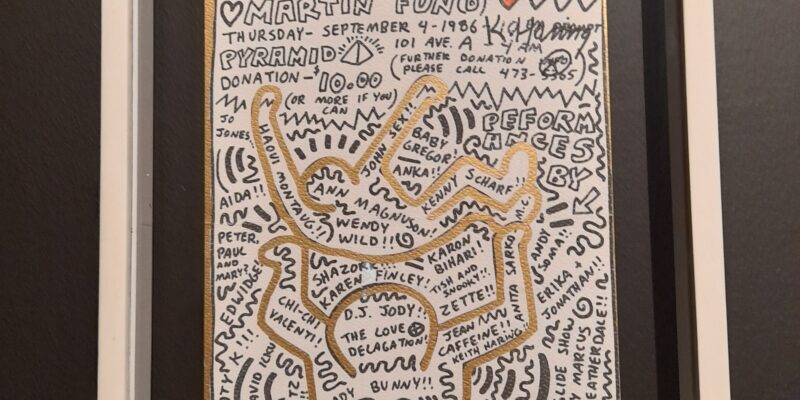 MARTIN FUND
THURSDAY - SEPTEMBER 4 - 1986
K. Haring
PYRAMID
101 AVE. A
4 AM
DONATION - $10.00
(OR MORE IF YOU CAN
(FURTHER DONATION INFO
PLEASE CALL 473-
PEFORM
ANCES
BY
JO
JONES
HAOUI MONTAUG!!
JOHN SEX!!
BABY
GREGOR!
ANKA!!
KENNY SCHARF!!
M.C.
ANN MAGNUSON!
WENDY
WILD!!
AIDA!!
PETER
PAUL
AND
MARY?
EDWIDGE
SHAZORK
KAREN FINLEY!
KARON
BIHARI!!
TISH AND
SNOOKY!!
ZETTE!!
ANITA SARKO
ANDY
SOMA!!
ERIKA
JONATHAN!!
CHI-CHI
VALENTI!
D.J. JODY!!
THE LOVE
DELAGATION!
JEAN
CAFFEINE!!
KEITH HARING!!
BUNNY!!
SLIDE SHOW
BY MARCUS
LEATHERDALE!!